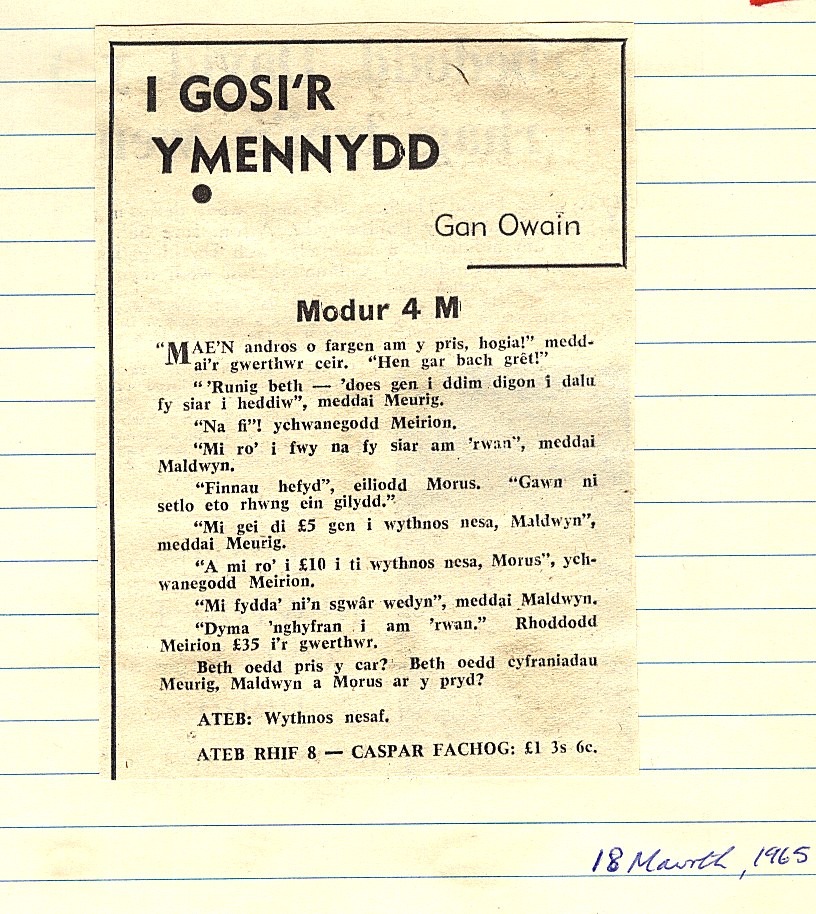 I GOSI'R
YMENNYDD
Gan Owain
Modur 4 M
"MAE'N andros o fargen am y pris, hogia!" medd-
ai'r gwerthwr ceir. "Hen gar bach grêt!"
"'Runig beth — 'does gen i ddim digon i dalu
fy siar i heddiw", meddai Meurig.
"Na fi"! ychwanegodd Meirion.
"Mi ro' i fwy na fy siar am 'rwan", meddai
Maldwyn.
"Finnau hefyd", eiliodd Morus. "Gawn ni
setlo eto rhwng ein gilydd."
"Mi gei di £5 gen i wythnos nesa, Maldwyn",
meddai Meurig.
"A mi ro' i £10 i ti wythnos nesa, Morus", ych-
wanegodd Meirion.
"Mi fydda' ni'n sgwâr wedyn", meddai Maldwyn.
"Dyma 'nghyfran i am 'rwan." Rhoddodd
Meirion £35 i'r gwerthwr.
Beth oedd pris y car? Beth oedd cyfraniadau
Meurig, Maldwyn a Morus ar y pryd?
ATEB: Wythnos nesaf.
ATEB RHIF 8 — CASPAR FACHOG: £1 3s 6c.
18 Mawrth, 1965